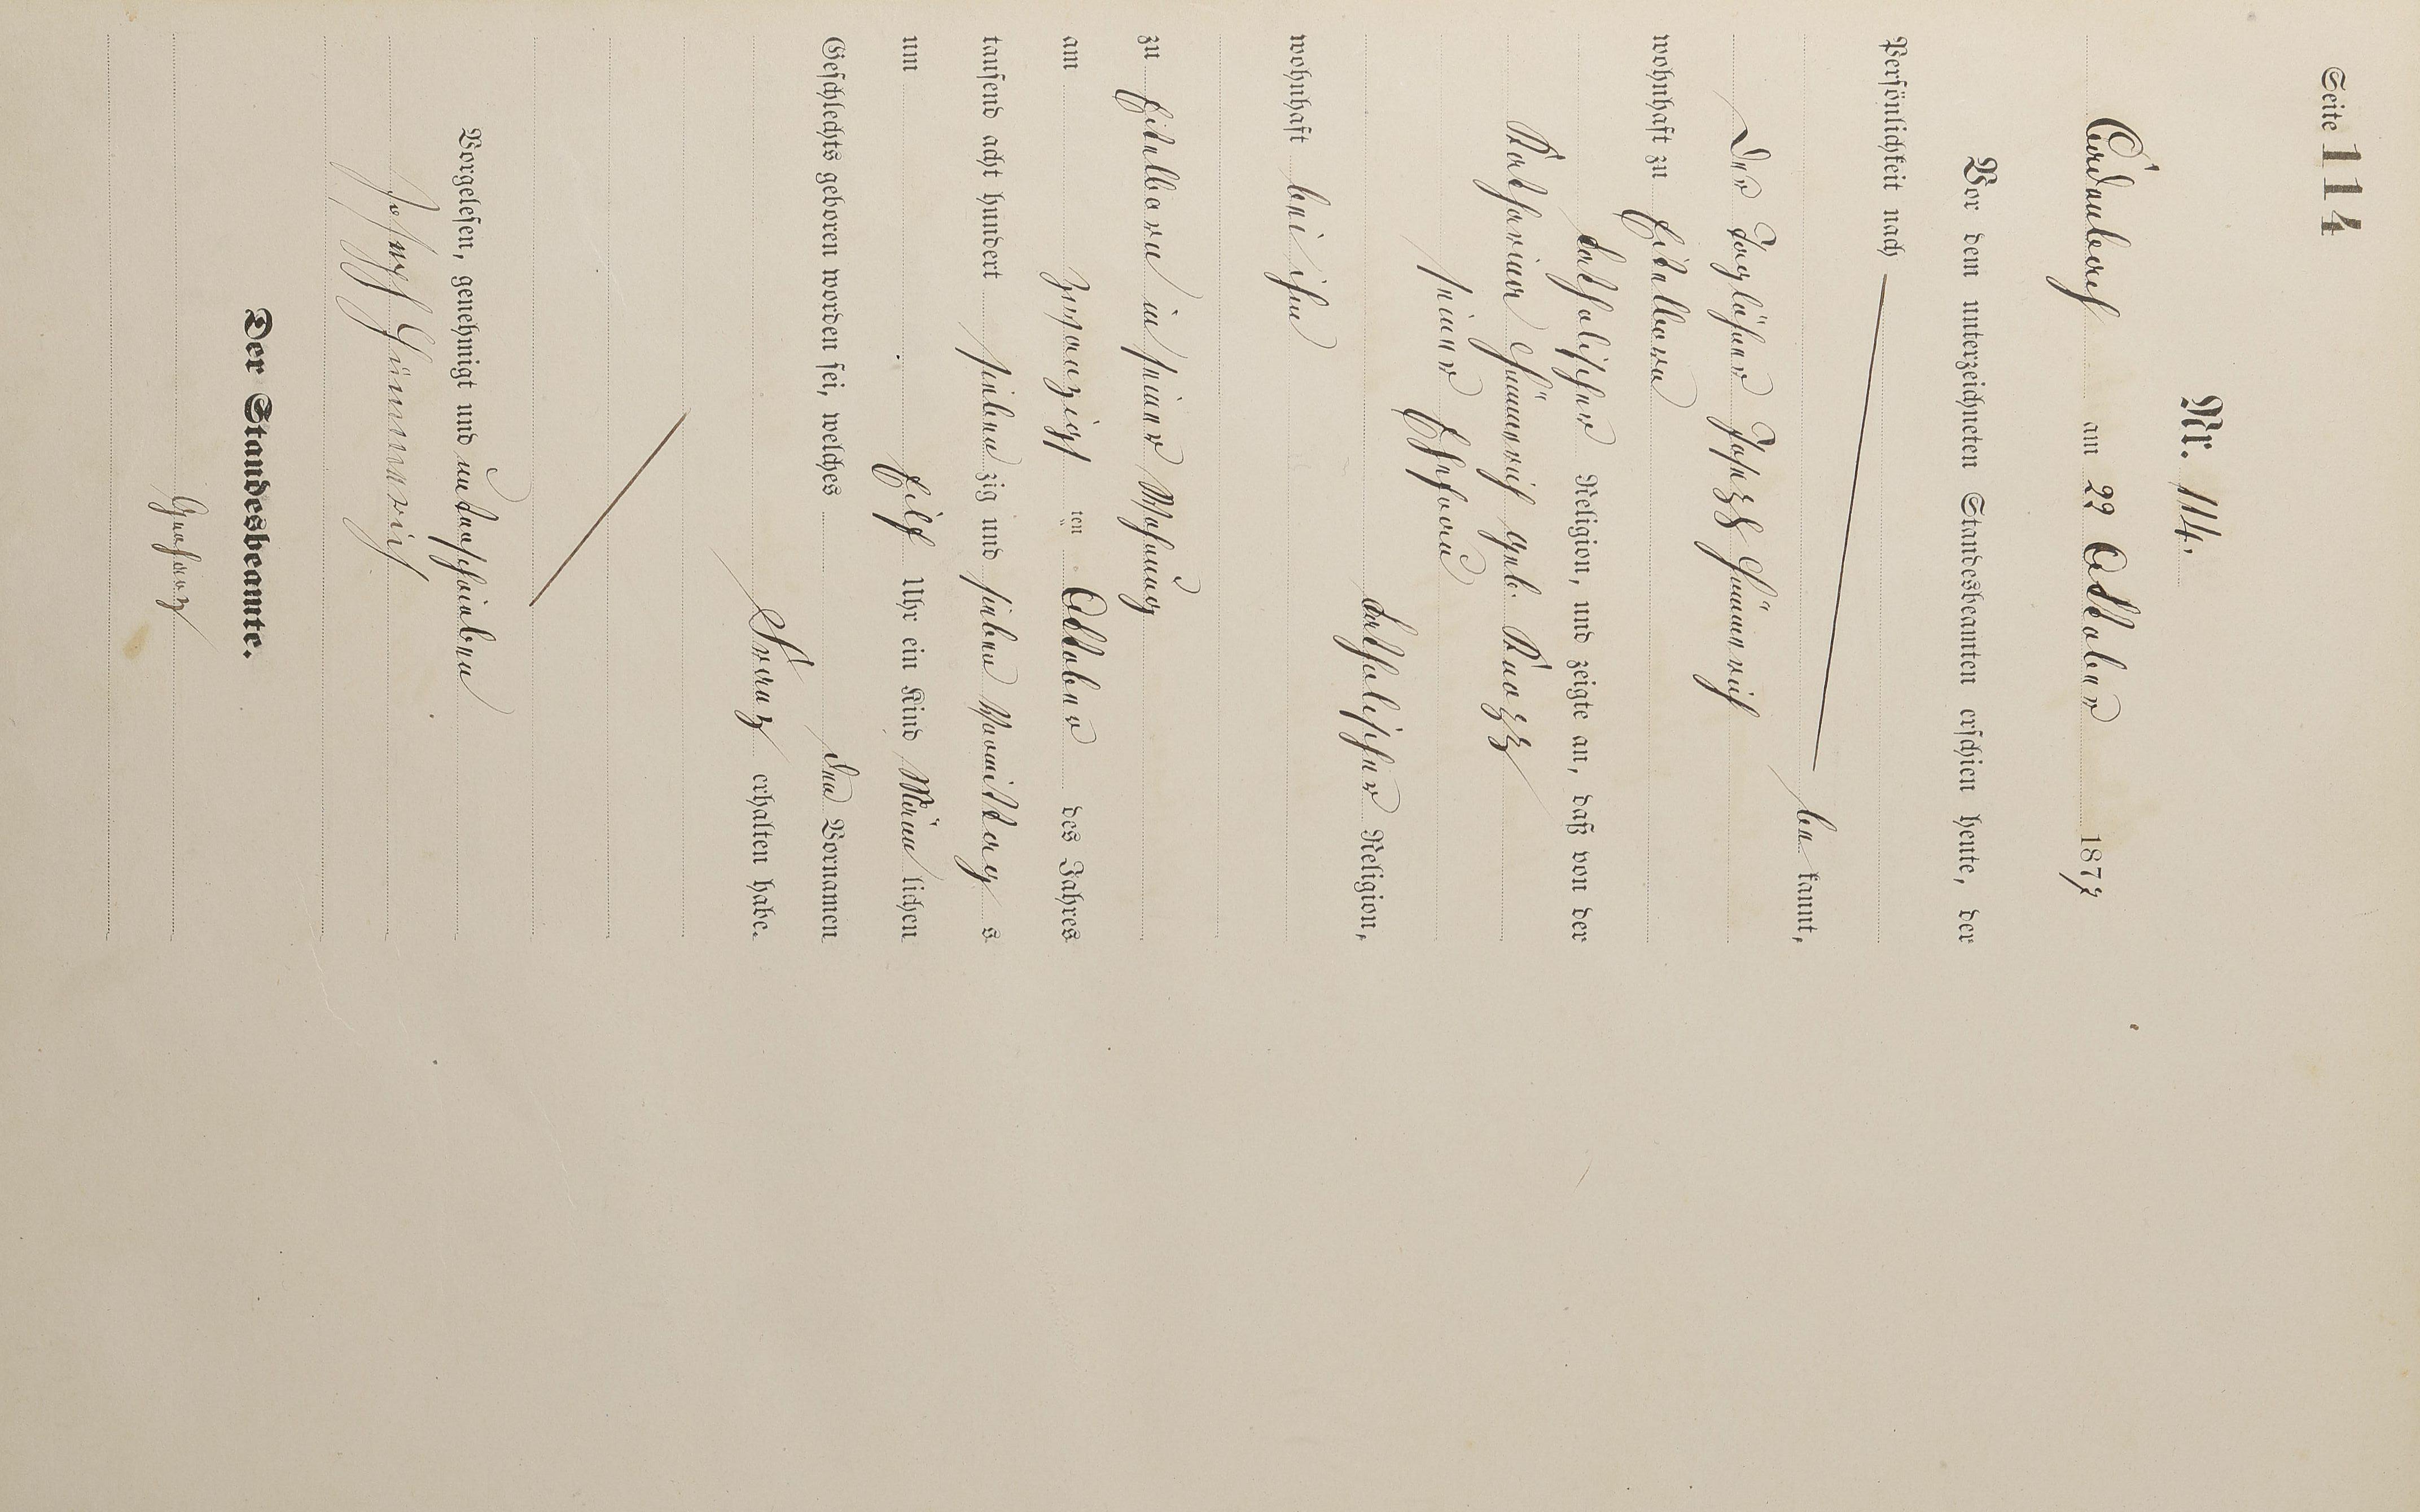 Seite 114
Nr. 114.
am 22 October 1877
Vor dem unterzeichneten Standesbeamten erschien heute, der
Persönlichkeit nach
be kannt,
der Taglöhner Joseph Hümmerich
wohnhaft zu Eitelborn
katholischer Religion, und zeigte an, daß von der
Katharina Hümmerich geb. Knopp
seiner Ehefrau
katholischer Religion,
wohnhaft bei ihm
zu Eitelborn in seiner Wohnung
am zwanzigsten October des Jahres
tausend acht hundert siebenzig und sieben Vormittags
um Eilf Uhr ein Kind Männlichen
Geschlechts geboren worden sei, welches den Vornamen
Franz erhalten habe.
Vorgelesen, genehmigt und unterschrieben
Joseph Hümmerich
Der Standesbeamte.